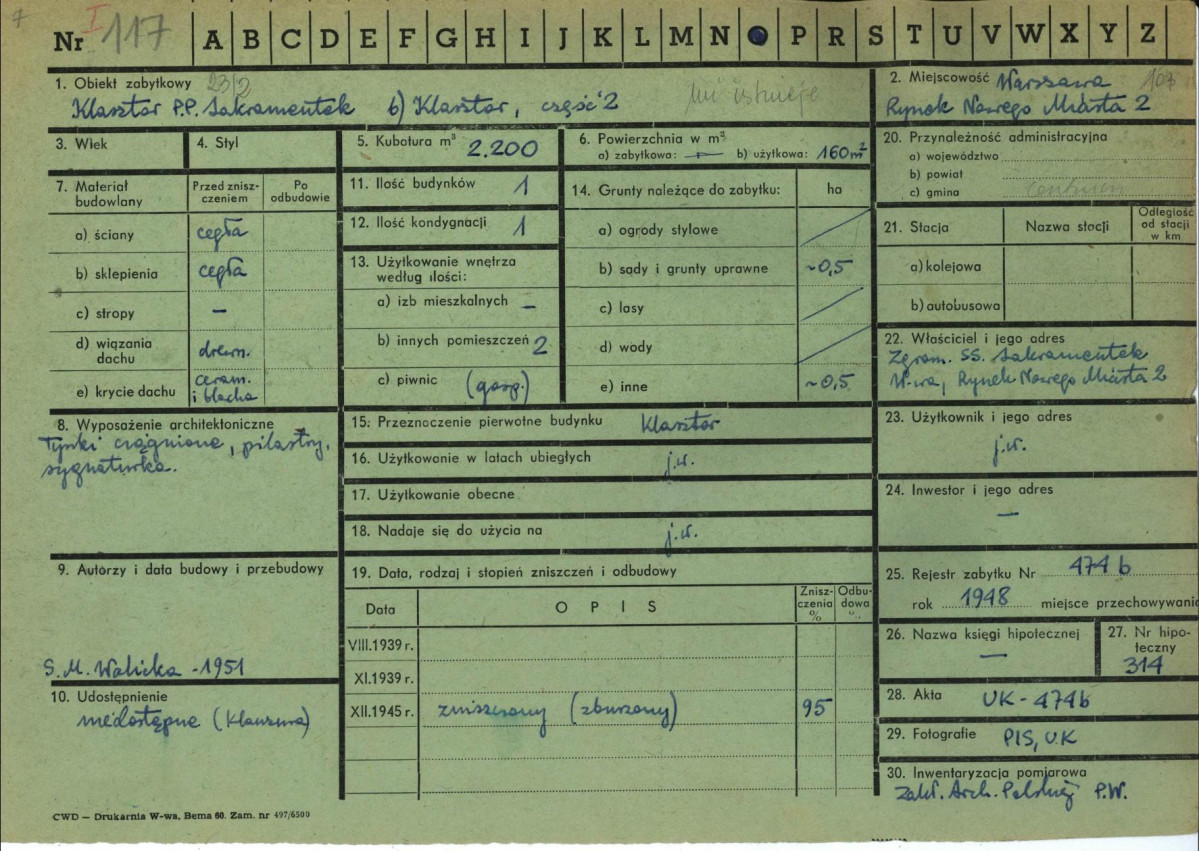 7
Nr I 117 A B C D E F G H I J K L M N P R S T U V W X Y Z
1. Obiekt zabytkowy 23/2
Klasztor P.P. Sakramentek b) Klasztor, część 2 nie istnieje
2. Miejscowość Warszawa 107
Rynek Nowego Miasta 2
3. Wiek
4. Styl
5. Kubatura m³ 2.200
6. Powierzchnia w m²
a) zabytkowa: — b) użytkowa: 160m²
7. Materiał budowlany
Przed zniszczeniem
Po odbudowie
a) ściany cegła
b) sklepienia cegła
c) stropy —
d) wiązania dachu drewn.
e) krycie dachu ceram. i blacha
8. Wyposażenie architektoniczne
Tynki ciągnione, pilastry,
sygnaturka.
9. Autorzy i data budowy i przebudowy
S. M. Walicka - 1951
10. Udostępnienie
niedostępne (Klauzura)
11. Ilość budynków 1
12. Ilość kondygnacji 1
13. Użytkowanie wnętrza
według ilości:
a) izb mieszkalnych —
b) innych pomieszczeń 2
c) piwnic (gosp.)
14. Grunty należące do zabytku: ha
a) ogrody stylowe
b) sady i grunty uprawne ~0,5
c) lasy
d) wody
e) inne ~0,5
15. Przeznaczenie pierwotne budynku Klasztor
16. Użytkowanie w latach ubiegłych j.w.
17. Użytkowanie obecne
18. Nadaje się do użycia na j.w.
19. Data, rodzaj i stopień zniszczeń i odbudowy
Data OPIS Zniszczenia % Odbudowa %
VIII.1939 r.
XI.1939 r.
XII.1945 r. zniszczony (zburzony) 95
20. Przynależność administracyjna
a) województwo
b) powiat
c) gmina centrum
21. Stacja Nazwa stacji Odległość od stacji w km
a) kolejowa
b) autobusowa
22. Właściciel i jego adres
Zgrom. SS. Sakramentek
W-wa, Rynek Nowego Miasta 2
23. Użytkownik i jego adres
j.w.
24. Inwestor i jego adres
—
25. Rejestr zabytku Nr 474 b
rok 1948 miejsce przechowywania
26. Nazwa księgi hipotecznej
—
27. Nr hipoteczny
314
28. Akta UK - 474b
29. Fotografie PIS, UK
30. Inwentaryzacja pomiarowa
Zakł. Arch. Polskiej P.W.
CWD — Drukarnia W-wa, Bema 60. Zam. nr 497/6500